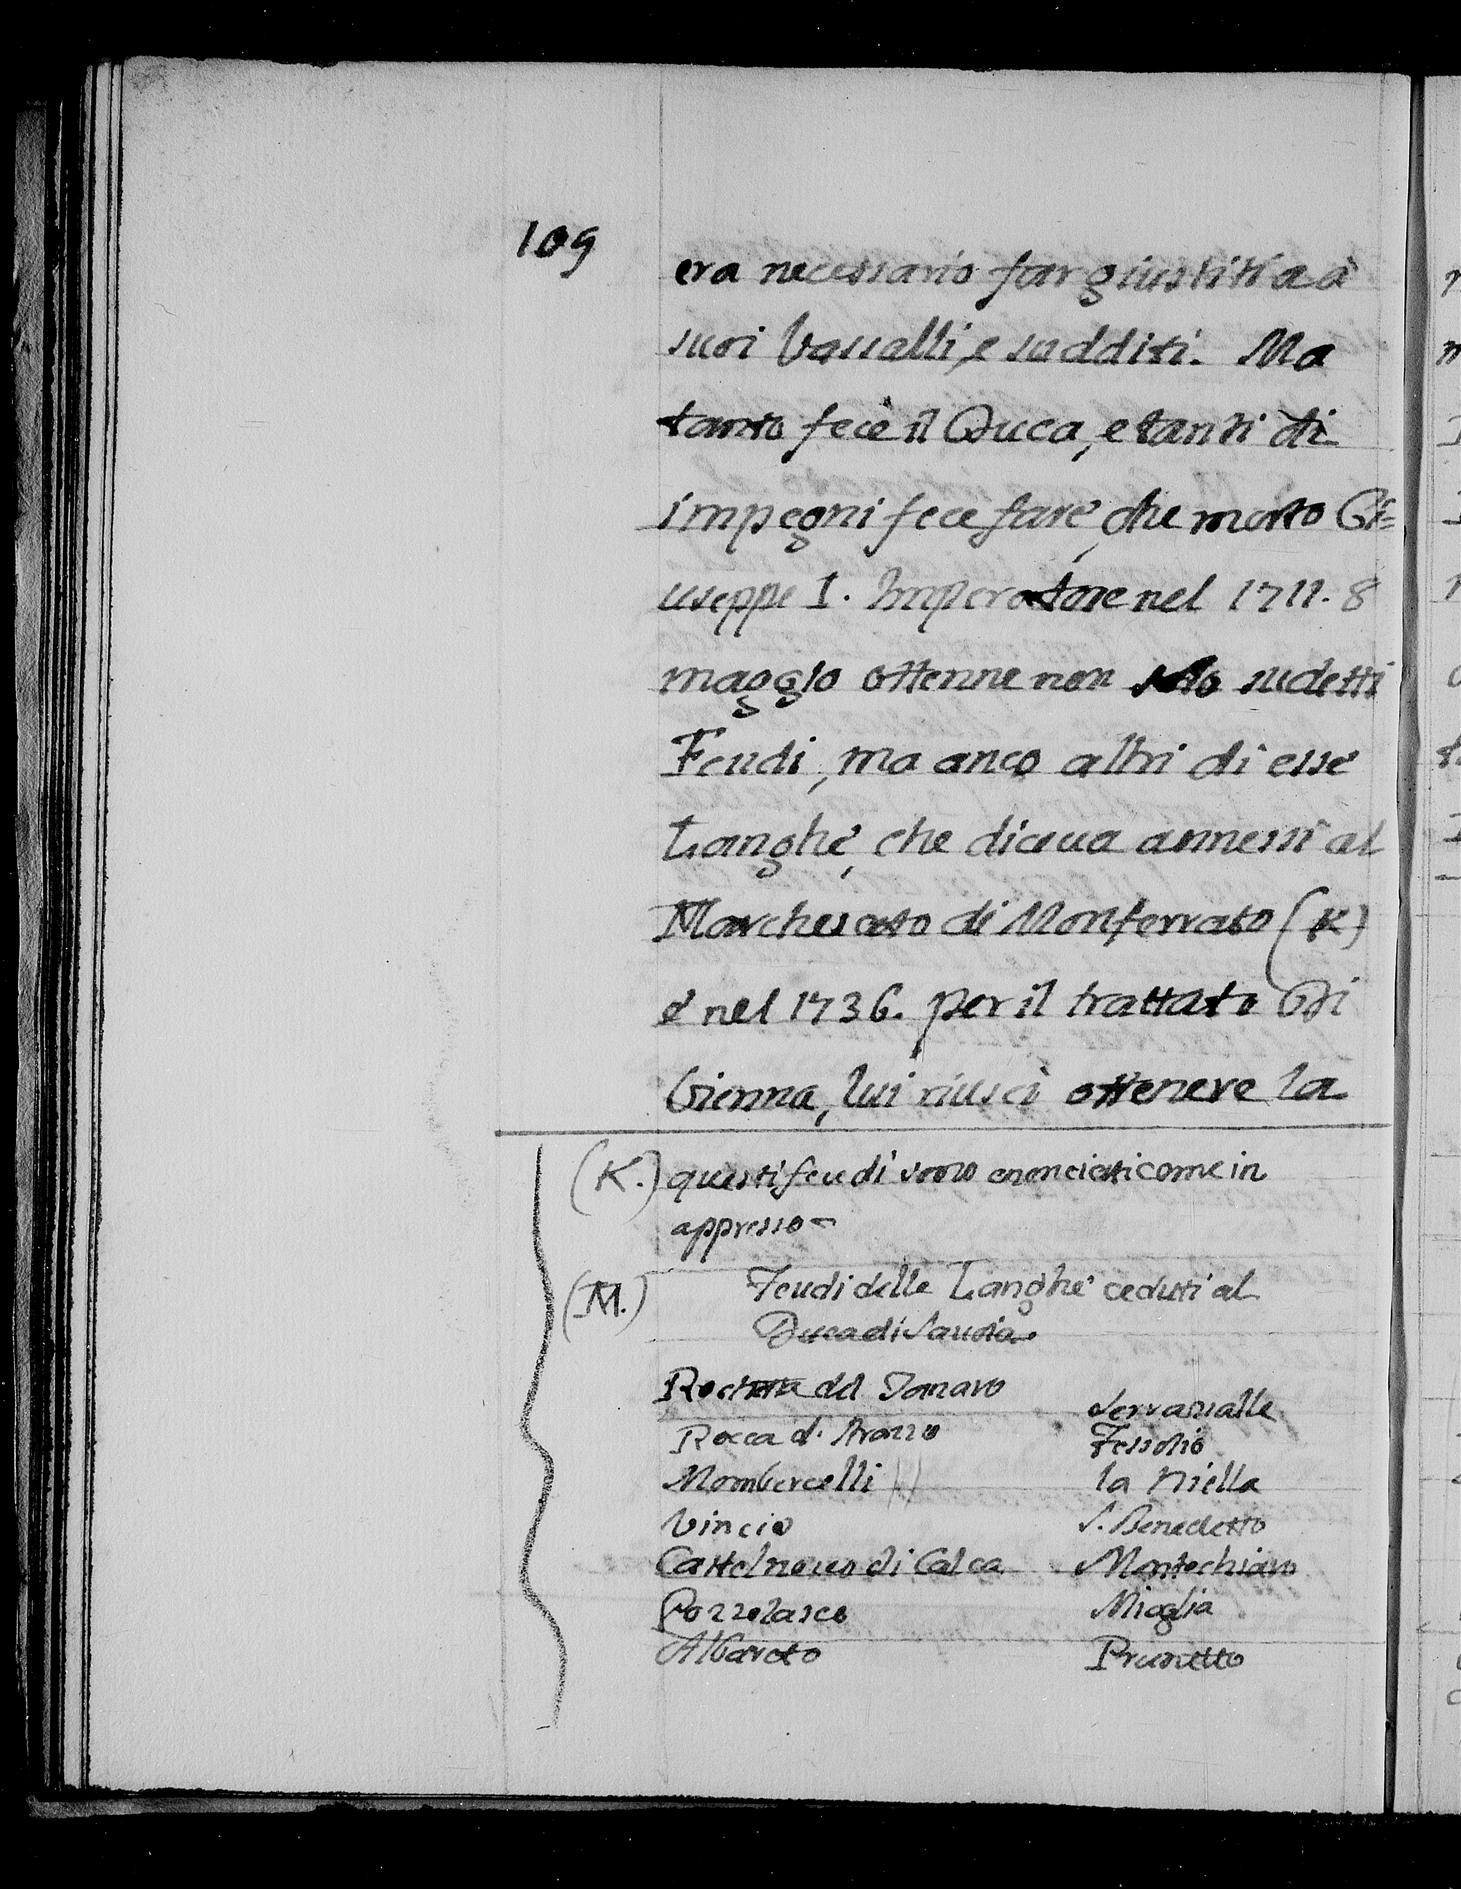 109
era necessario far giustitia à
suoi Vassalli, e sudditi. Ma
tanto fece il Duca, e tanti di
impegni fece fare, che morto Gi=
useppe I. Imperatore nel 1711. 8
maggio ottenne non solo sudetti
Feudi, ma anco altri di esse
Langhe, che diceua annessi al
Marchesato di Monferrato (K)
e nel 1736. per il trattato di
Vienna, lui riuscì ottenere la
(K.) questi feudi sono enonciati come in
appresso
(M.) Feudi delle Langhe ceduti al
Duca di Sauoia.
Rochetta del Tanaro
Rocca d'Arazzo
Mombercelli
Vincio
Castelnouo di Calcea
Pozzolasco
Albareto
Serraualle
Fessolio
la Niella
S. Benedetto
Montechiaro
Mioglia
Prunetto